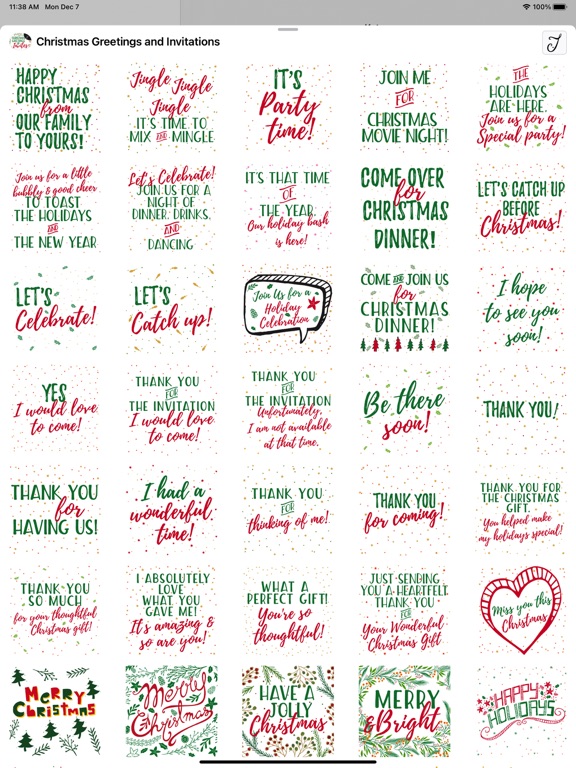 11:38 AM Mon Dec 7
100%
Christmas Greetings and Invitations
HAPPY
CHRISTMAS
from
OUR FAMILY
TO YOURS!
Jingle Jingle
Jingle
IT'S TIME TO
MIX AND MINGLE
IT'S
Party
time!
JOIN ME
FOR
CHRISTMAS
MOVIE NIGHT!
THE
HOLIDAYS
ARE HERE.
Join us for a
Special party!
Join us for a little
bubbly & good cheer
TO TOAST
THE HOLIDAYS
AND
THE NEW YEAR
Let's Celebrate!
JOIN US FOR A
NIGHT OF
DINNER, DRINKS,
AND
DANCING
IT'S THAT TIME
OF
THE YEAR.
Our holiday bash
is here!
COME OVER
for
CHRISTMAS
DINNER!
LET'S CATCH UP
BEFORE
Christmas!
LET'S
Celebrate!
LET'S
Catch up!
Join Us for a
Holiday
Celebration
COME AND JOIN US
for
CHRISTMAS
DINNER!
I hope
to see you
soon!
YES
I would love
to come!
THANK YOU
FOR
THE INVITATION
I would love
to come!
THANK YOU
FOR
THE INVITATION
Unfortunately,
I am not available
at that time.
Be there
soon!
THANK YOU!
THANK YOU
for
HAVING US!
I had a
wonderful
time!
THANK YOU
FOR
thinking of me!
THANK YOU
for coming!
THANK YOU FOR
THE CHRISTMAS
GIFT.
You helped make
my holidays special!
THANK YOU
SO MUCH
for your thoughtful
Christmas gift!
I ABSOLUTELY
LOVE
WHAT YOU
GAVE ME!
It's amazing &
so are you!
WHAT A
PERFECT GIFT!
You're so
thoughtful!
JUST SENDING
YOU A HEARTFELT
THANK YOU
FOR
Your Wonderful
Christmas Gift
Miss you this
Christmas
MERRY
CHRISTMAS
Merry
Christmas
HAVE A
JOLLY
Christmas
MERRY
&Bright
HAPPY
HOLIDAYS